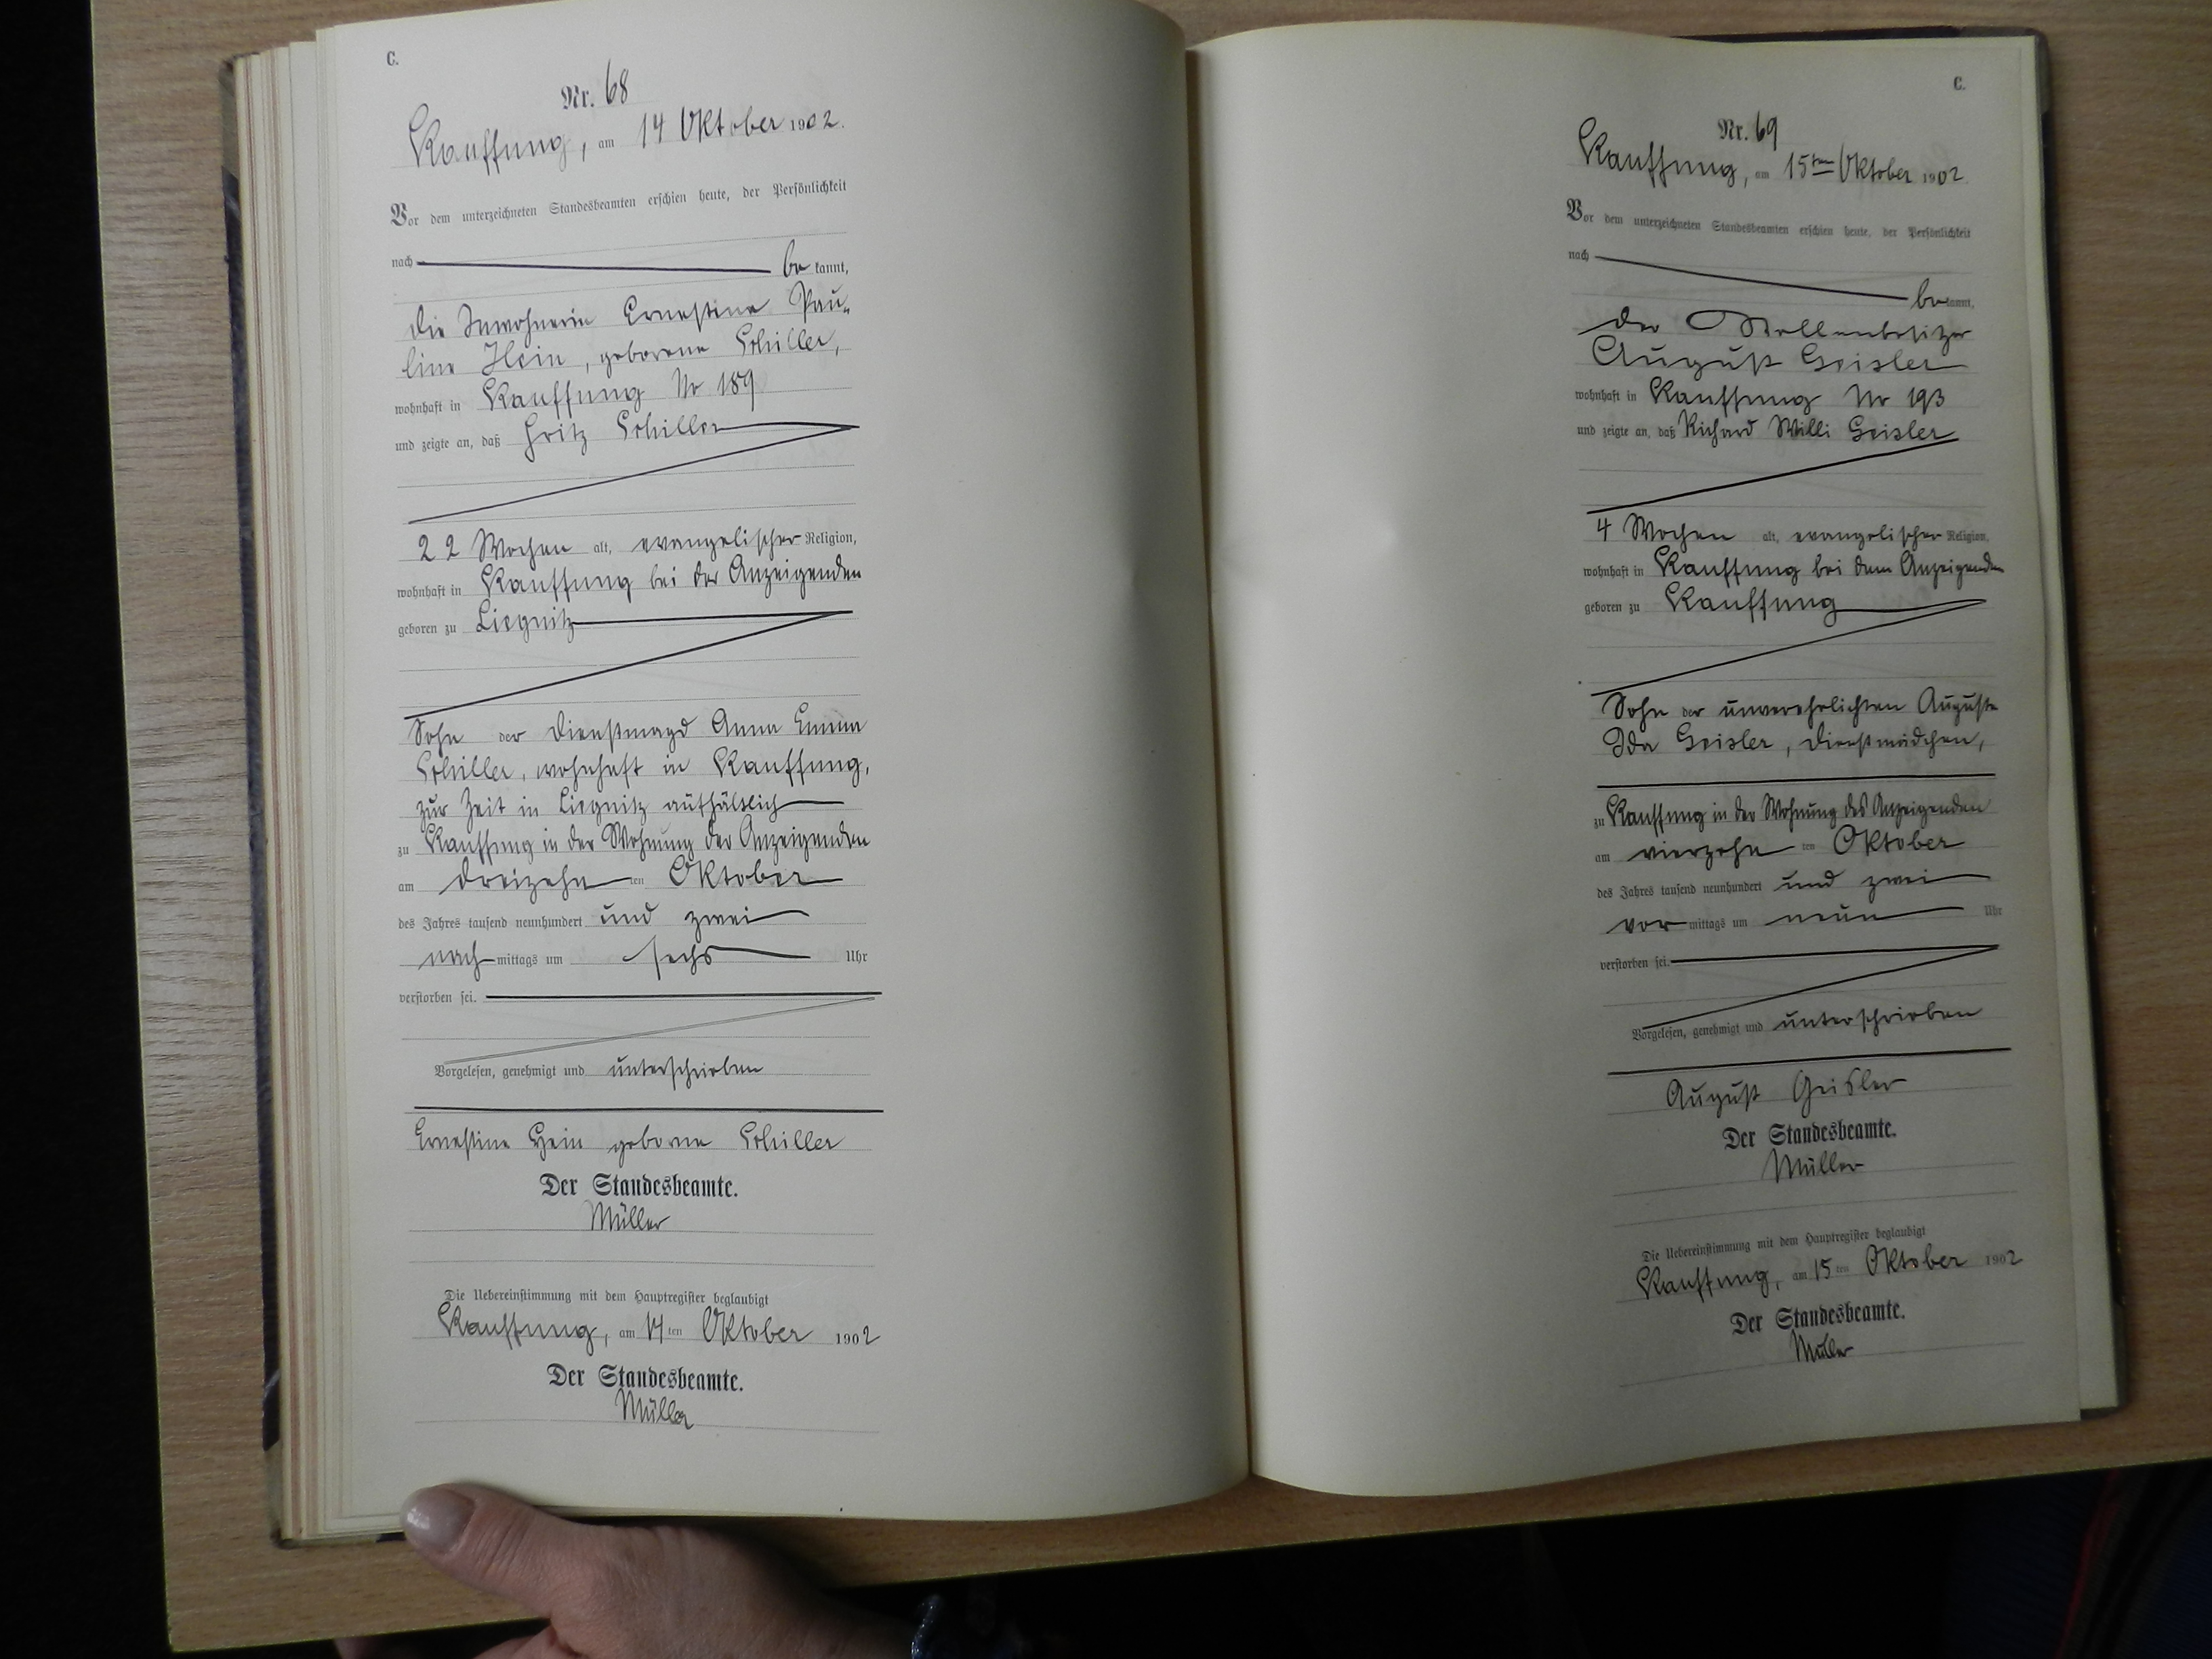 C.
Nr. 68
Kauffung, am 14 Oktober 1902.
Vor dem unterzeichneten Standesbeamten erschien heute, der Persönlichkeit
nach be kannt,
die Inwohnerin Ernestine Pau-
line Hein, geborene Schiller,
wohnhaft in Kauffung Nr 189
und zeigte an, daß Fritz Schiller
22 Wochen alt, evangelischer Religion,
wohnhaft in Kauffung bei der Anzeigenden
geboren zu Liegnitz
Sohn der Dienstmagd Anna Emma
Schiller, wohnhaft in Kauffung,
zur Zeit in Liegnitz aufhältlich
zu Kauffung in der Wohnung der Anzeigenden
am dreizehn ten Oktober
des Jahres tausend neunhundert und zwei
nach mittags um sechs Uhr
verstorben sei.
Vorgelesen, genehmigt und unterschrieben
Ernestine Hein geborne Schiller
Der Standesbeamte.
Müller
Die Uebereinstimmung mit dem Hauptregister beglaubigt
Kauffung, am 14 ten Oktober 1902
Der Standesbeamte.
Müller
C.
Nr. 69
Kauffung, am 15ten Oktober 1902.
Vor dem unterzeichneten Standesbeamten erschien heute, der Persönlichkeit
nach be kannt,
der Stellenbesitzer
August Geisler
wohnhaft in Kauffung Nr 193
und zeigte an, daß Richard Willi Geisler
4 Wochen alt, evangelischer Religion,
wohnhaft in Kauffung bei dem Anzeigenden
geboren zu Kauffung
Sohn der unverehelichten Auguste
Ida Geisler, Dienstmädchen,
zu Kauffung in der Wohnung des Anzeigenden
am vierzehn ten Oktober
des Jahres tausend neunhundert und zwei
vor mittags um neun Uhr
verstorben sei.
Vorgelesen, genehmigt und unterschrieben
August Geisler
Der Standesbeamte.
Müller
Die Uebereinstimmung mit dem Hauptregister beglaubigt
Kauffung, am 15 ten Oktober 1902
Der Standesbeamte.
Müller